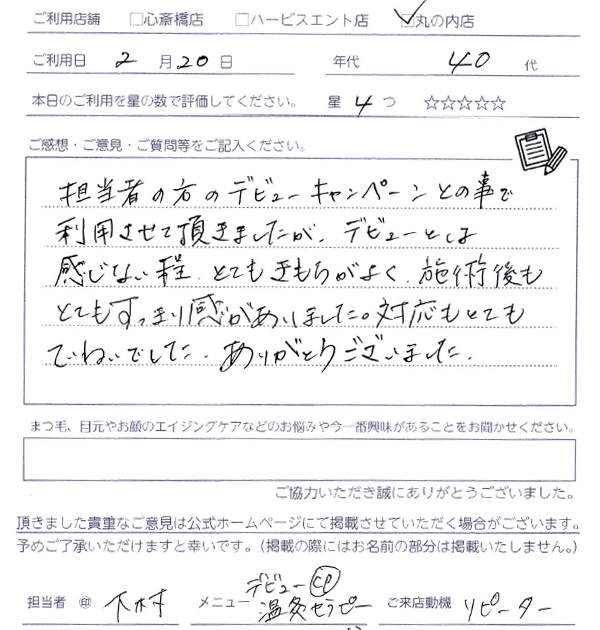 ご利用店舗 □心斎橋店 □ハービスエント店 ☑丸の内店
ご利用日 2 月 20 日 年代 40 代
本日のご利用を星の数で評価してください。 星 4 つ ☆☆☆☆☆
ご感想・ご意見・ご質問等をご記入ください。
担当者の方のデビューキャンペーンとの事で
利用させて頂きましたが、デビューとは
感じない程、とてもきもちがよく、施術後も
とてもすっきり感がありました。対応もとても
ていねいでした。ありがとうございました。
まつ毛、目元やお顔のエイジングケアなどのお悩みや今一番興味があることをお聞かせください。
ご協力いただき誠にありがとうございました。
頂きました貴重なご意見は公式ホームページにて掲載させていただく場合がございます。
予めご了承いただけますと幸いです。（掲載の際にはお名前の部分は掲載いたしません。）
デビューCP
担当者 ㊞ 下村 メニュー 温灸セラピー ご来店動機 リピーター